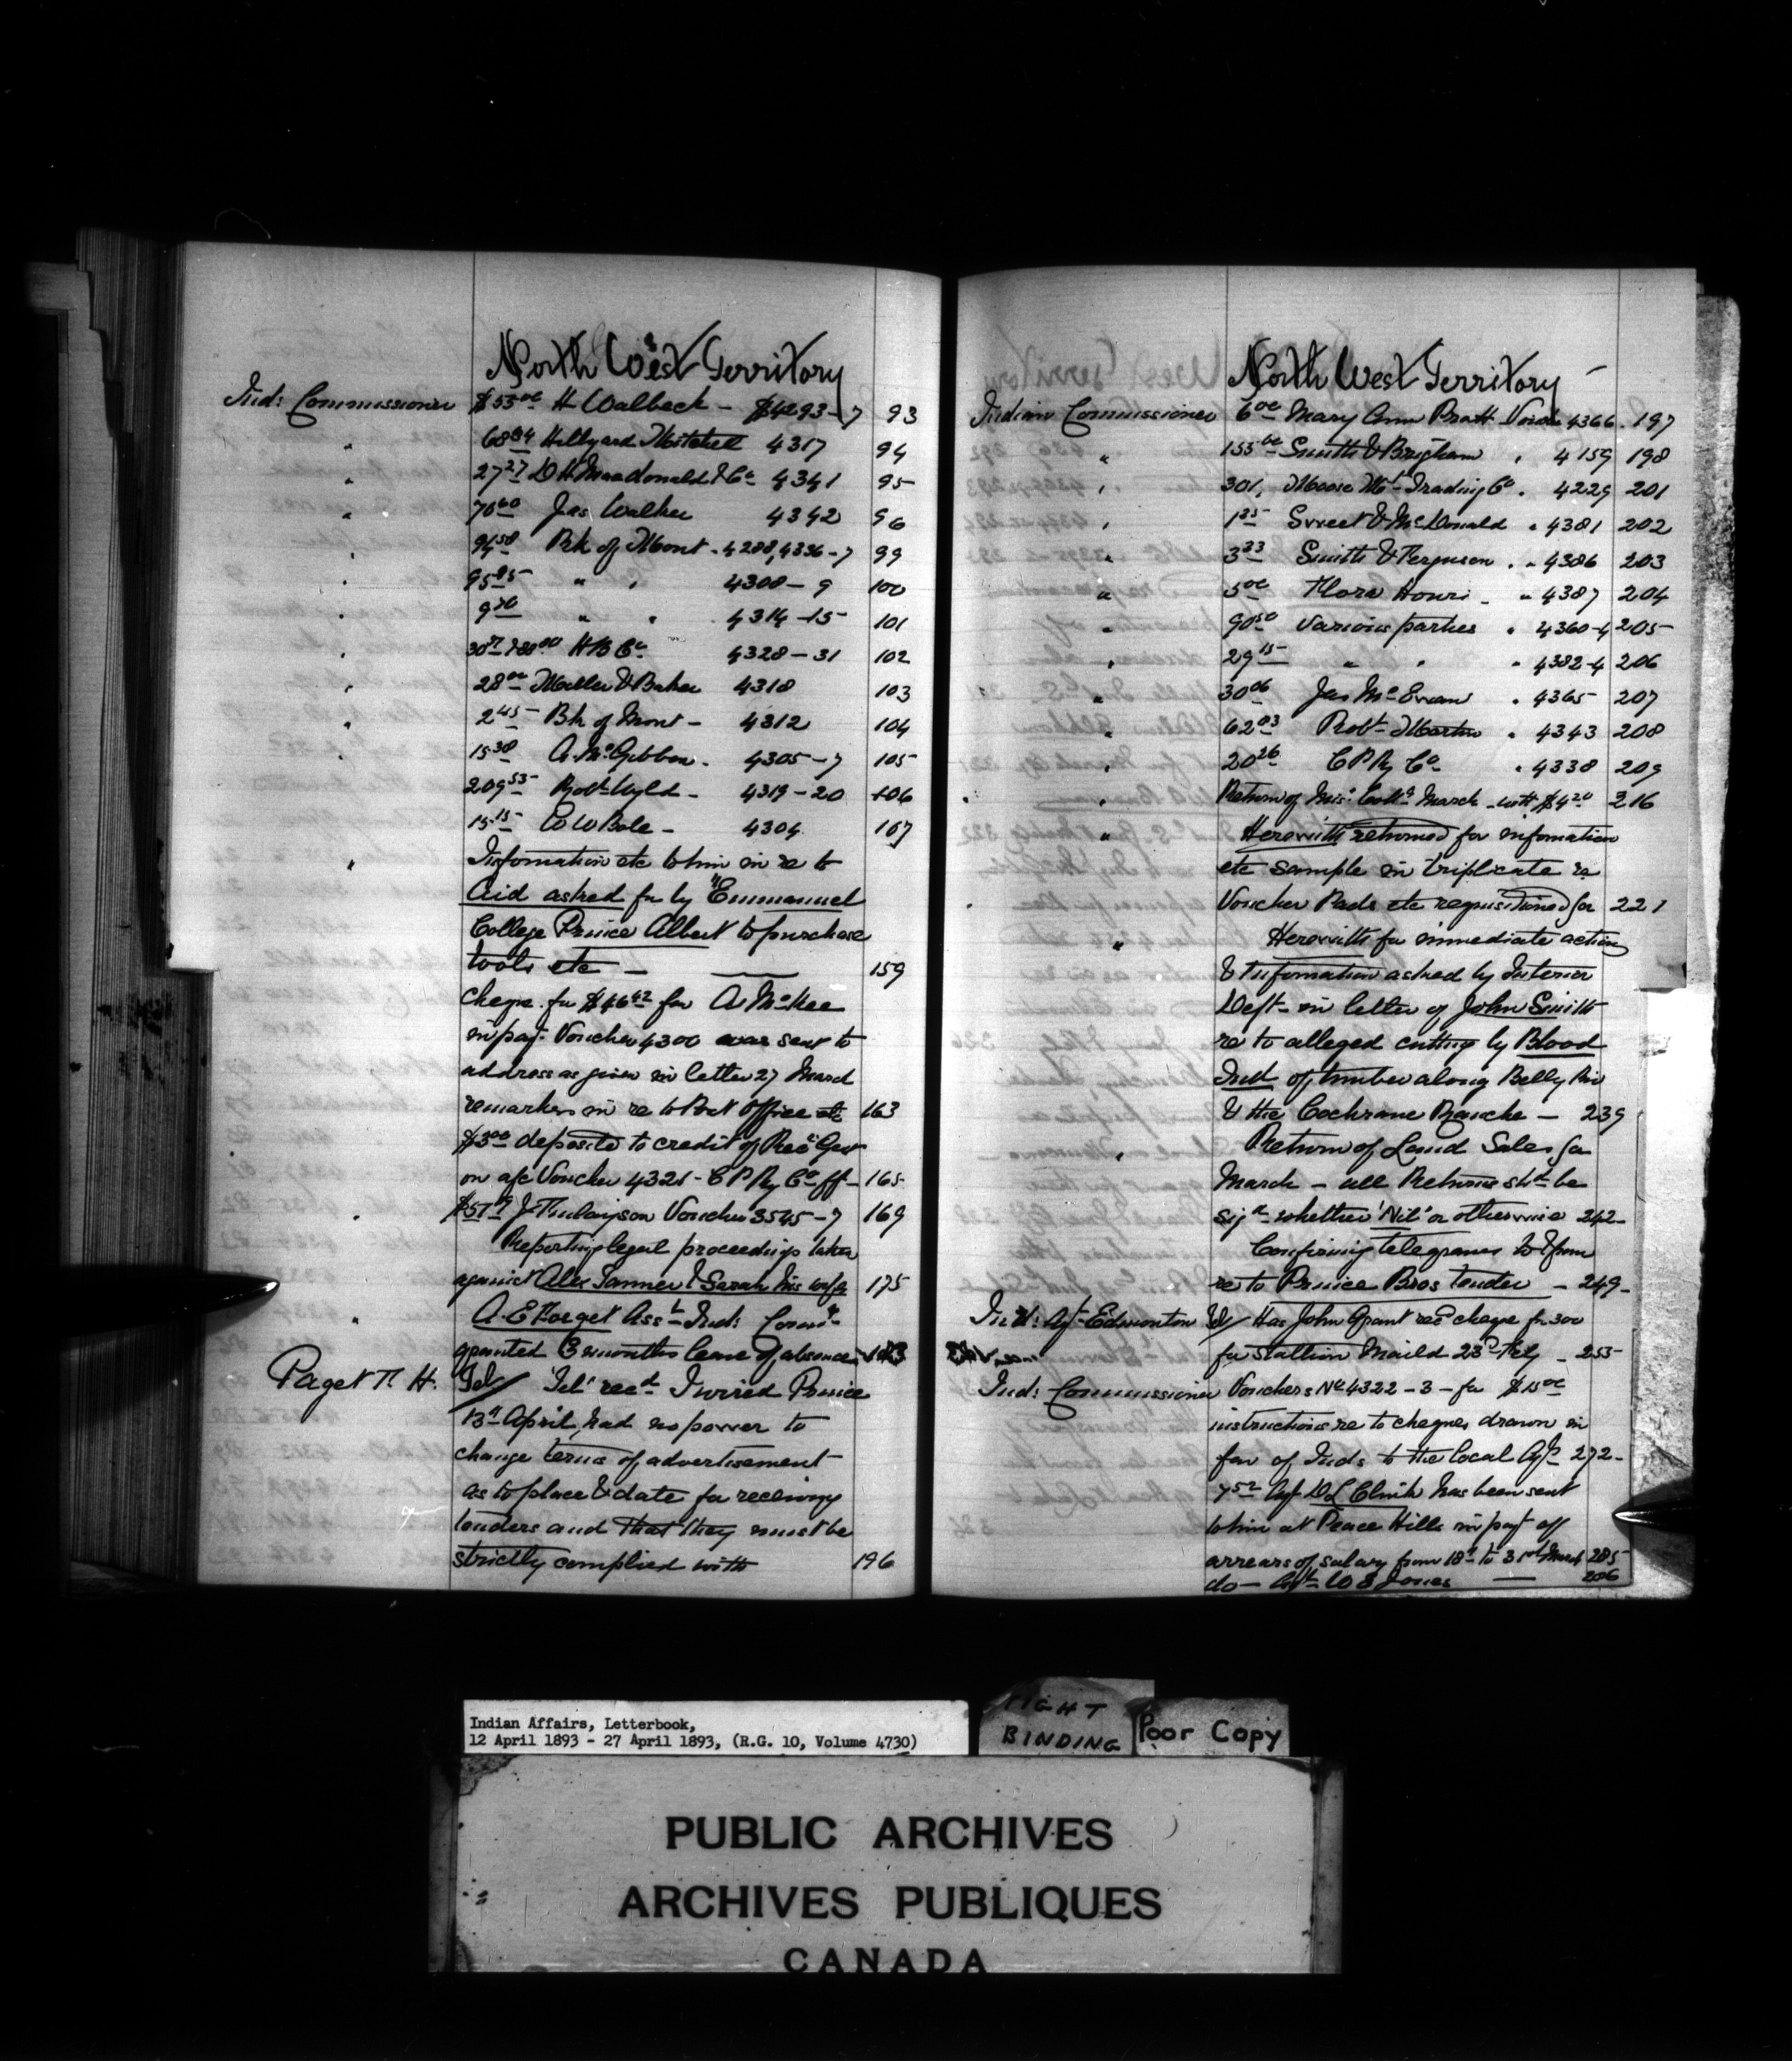 North West Territory
Ind: Commissioner $55.00 H Walbeck - $4293-7 93
" 68.84 Hillyard Mitchell 4317 94
" 27.27 D H Macdonald & Co 4341 95
" 70.60 Jas Walker 4342 96
" 94.58 Bk of Mont - 4288, 4336-7 99
" 95.85 " " 4308-9 100
" 9.70 " " 4314-15 101
" H B Co 4328-31 102
" 28.00 Miller & Baker 4318 103
" 2.45 Bk of Mont - 4312 104
" 15.38 A. McGibbon - 4305-7 105
209.53 Robt Wyld - 4319-20 106
15.15 W W Bole - 4304 107
" Information etc to him in re to
Aid asked for by "Emmanuel
College Prince Albert to purchase
tools etc — 159
Cheque for $46.42 for A McKee
in pay. Voucher 4300 was sent to
address as given in letter 27 March
remarks in re to Post Office etc 163
$3.00 deposited to credit of Rec Gen
on a/c Voucher 4321 - C P Ry Co ff - 165
" J Finlayson Voucher 3545-7 169
Reporting legal proceedings taken
against Alex Tanner & Sarah his wife 175
" A. E Forget Asst Ind: Commr
granted 3 months leave of absence - 183
Paget T. H. Tel/ Tel' recd I wired Prince
13th April, had no power to
change terms of advertisement
as to place & date for receiving
tenders and that they must be
strictly complied with 196
North West Territory
Indian Commissioner 6.00 Mary Ann Pratt Vouch 4366. 197
" 155.00 Smith & Brigham " 4159 198
" 301, Moose Mt Trading Co " 4229 201
" 1.25 Sweet & McDonald " 4381 202
" 3.33 Smith & Ferguson " 4386 203
" 5.00 Flora Houri - " 4387 204
" 90.50 Various parties " 4360-4 205
" 29.15 " " " 4382-4 206
" 30.06 Jas McEwan " 4365 207
" 62.03 Robt Martin " 4343 208
" 20.26 C P Ry Co " 4338 209
" Return of Misc. Colls March - with $4.20 216
" Herewith returned for information
etc sample in triplicate re
Voucher Pads etc requisitioned for 221
" Herewith for immediate action
& Information asked by Interior
Dept in letter of John Smith
re to alleged cutting by Blood
Ind of timber along Belly Riv
& the Cochrane Ranche — 239
" Return of Land Sales for
March - all Returns shd be
sigd whether 'Nil' or otherwise 242
Confirming telegrams to & from
re to Prince Bros tender - 249
Ind: Agt Edmonton Tel/ Has John Grant recd cheque for 300
for Stallion Maild 23d Feby - 255
Ind: Commissioner Vouchers No 4322-3 - for $15.00
instructions re to cheques drawn in
fav of Inds to the local Agts 272
7.52 Agt D L Clink has been sent
to him at Peace Hills in payt off
arrears of salary from 18th to 31st March 285
do — Agt W S Jones — 286
Indian Affairs, Letterbook,
12 April 1893 - 27 April 1893, (R.G. 10, Volume 4730)
TIGHT
BINDING
Poor Copy
PUBLIC ARCHIVES
ARCHIVES PUBLIQUES
CANADA